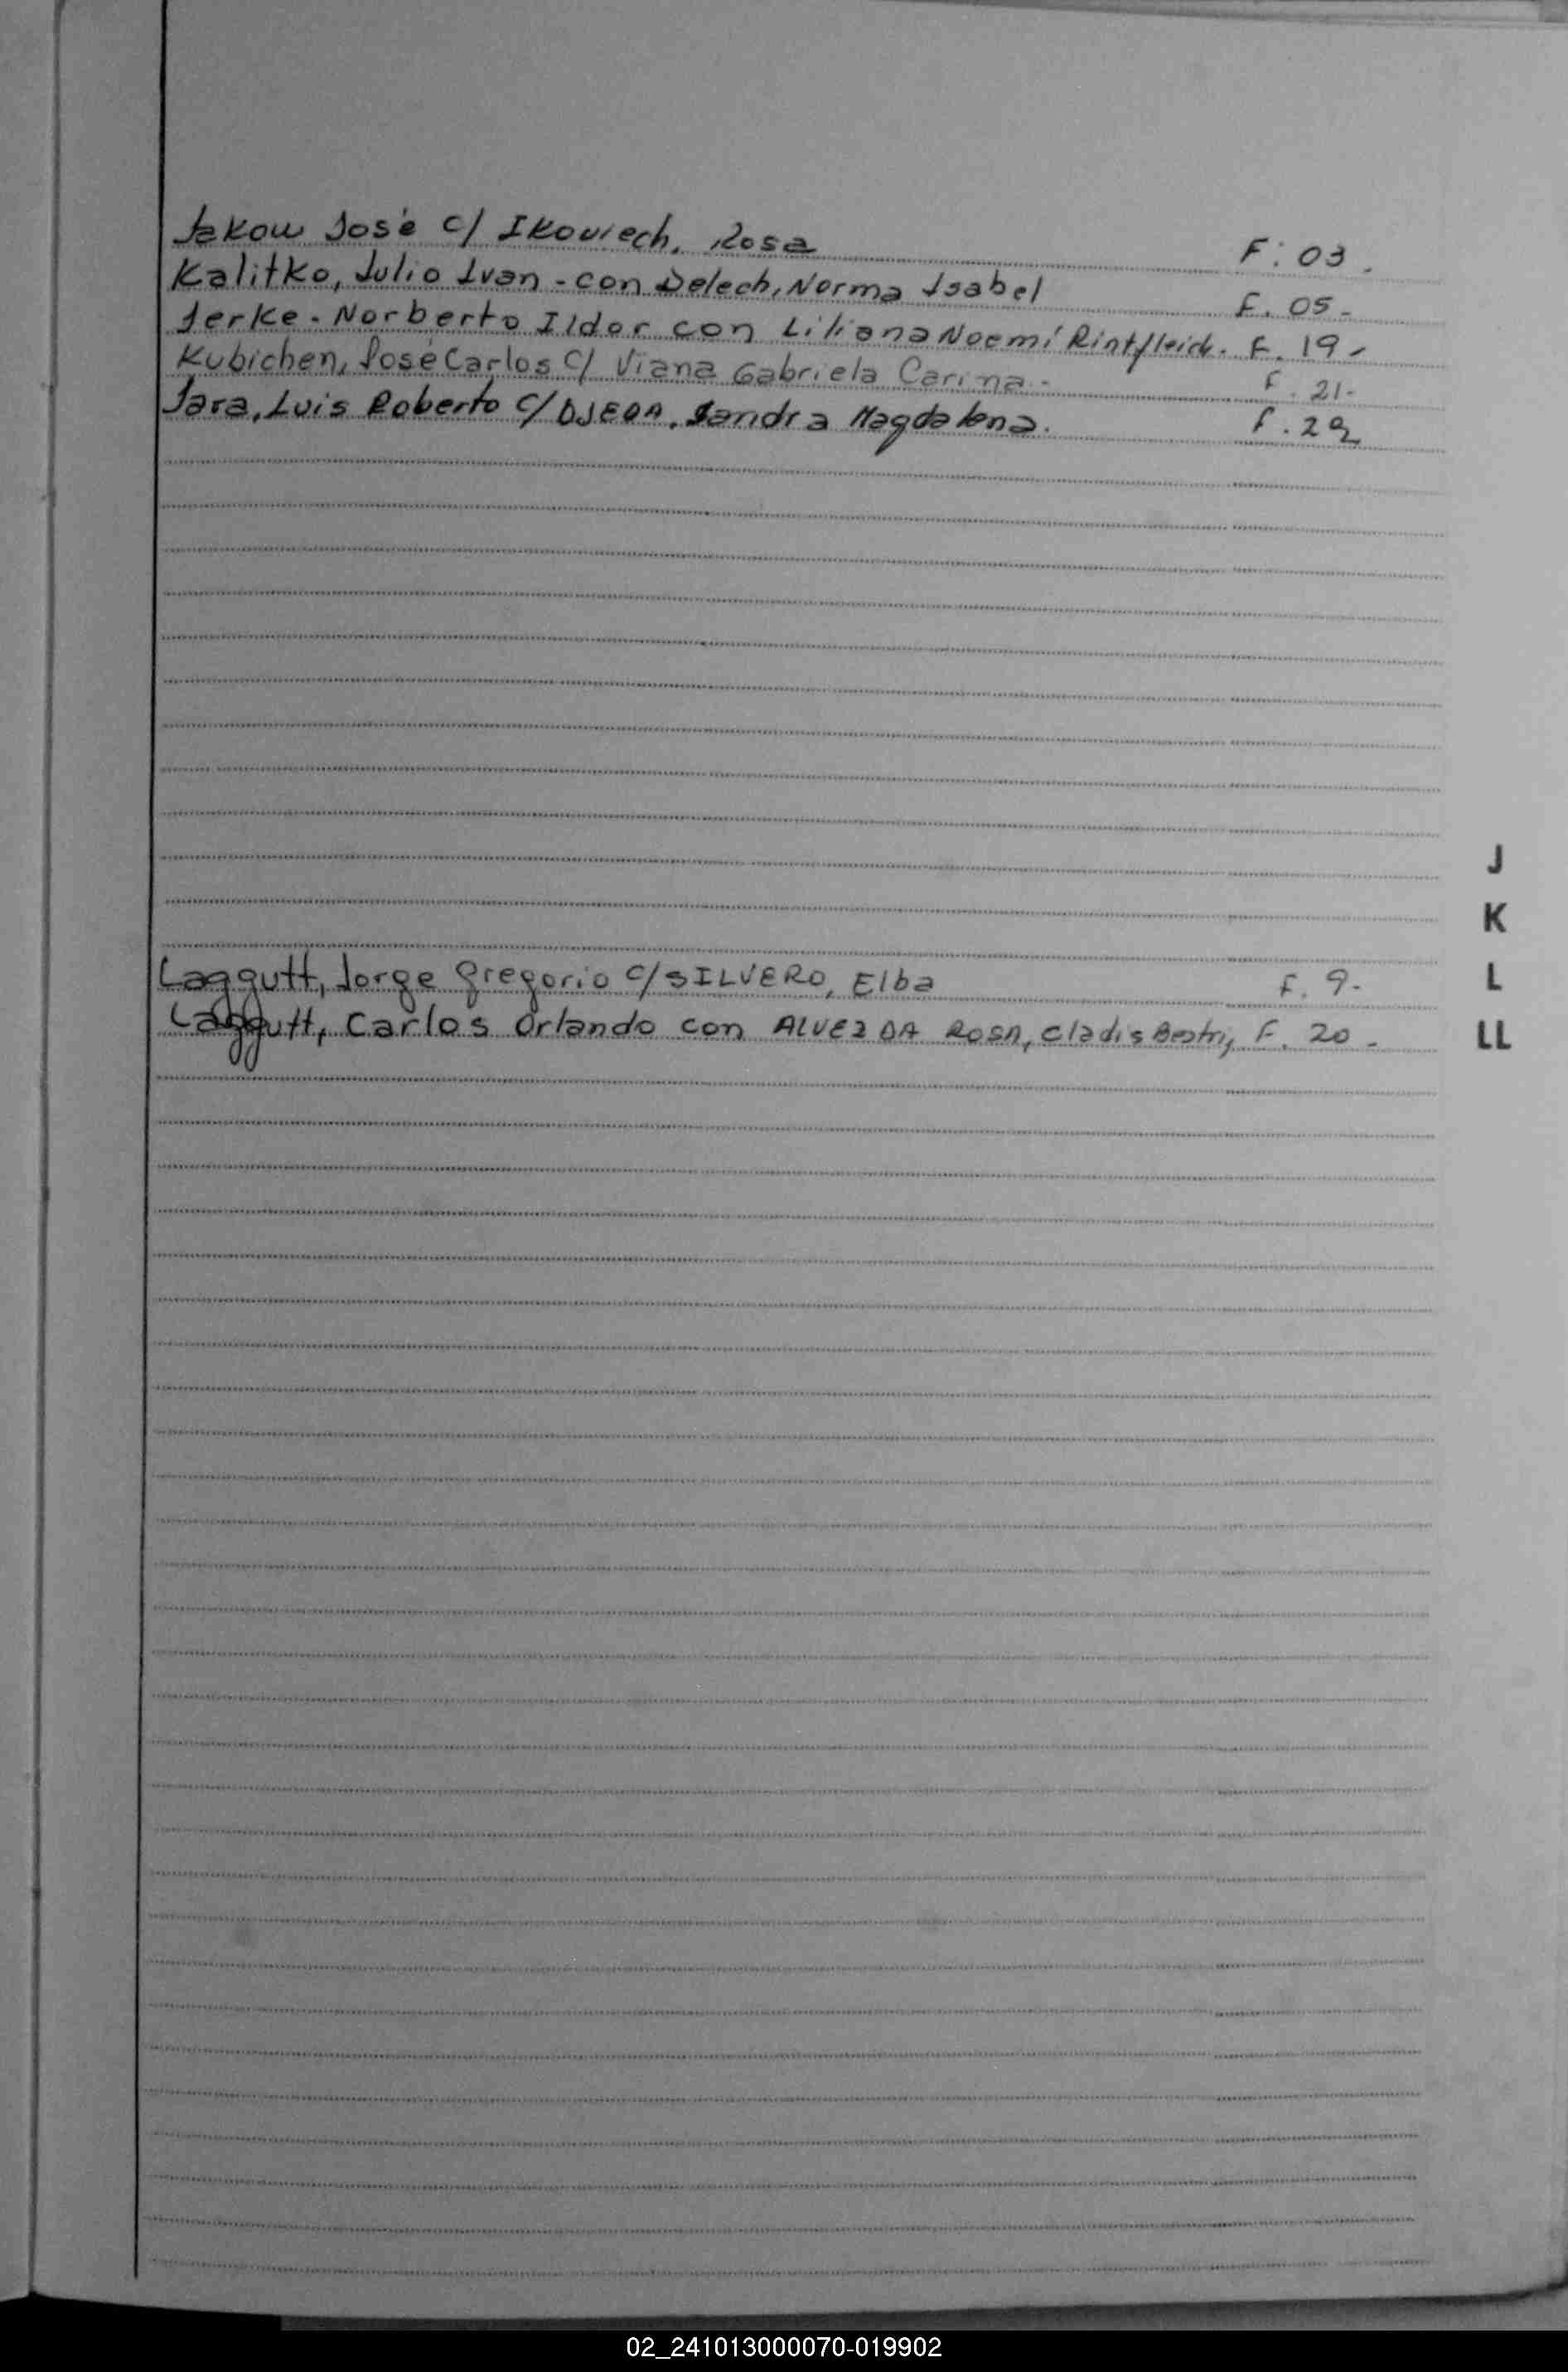 Jakow José c/ Ikowiech, Rosa F: 03.
Kalitko, Julio Ivan - con Delech, Norma Isabel F. 05-
Jerke - Norberto Ildor con Liliana Noemí Rintfleich. F. 19-
Kubichen, José Carlos c/ Viana Gabriela Carina - F. 21-
Jara, Luis Roberto c/ OJEDA, Sandra Magdalena. F. 29
J
K
Laggutt, Jorge Gregorio c/ SILVERO, Elba F. 9-
L
Laggutt, Carlos Orlando con ALVEZ DA ROSA, Cladis F. 20-
LL
02_241013000070-019902